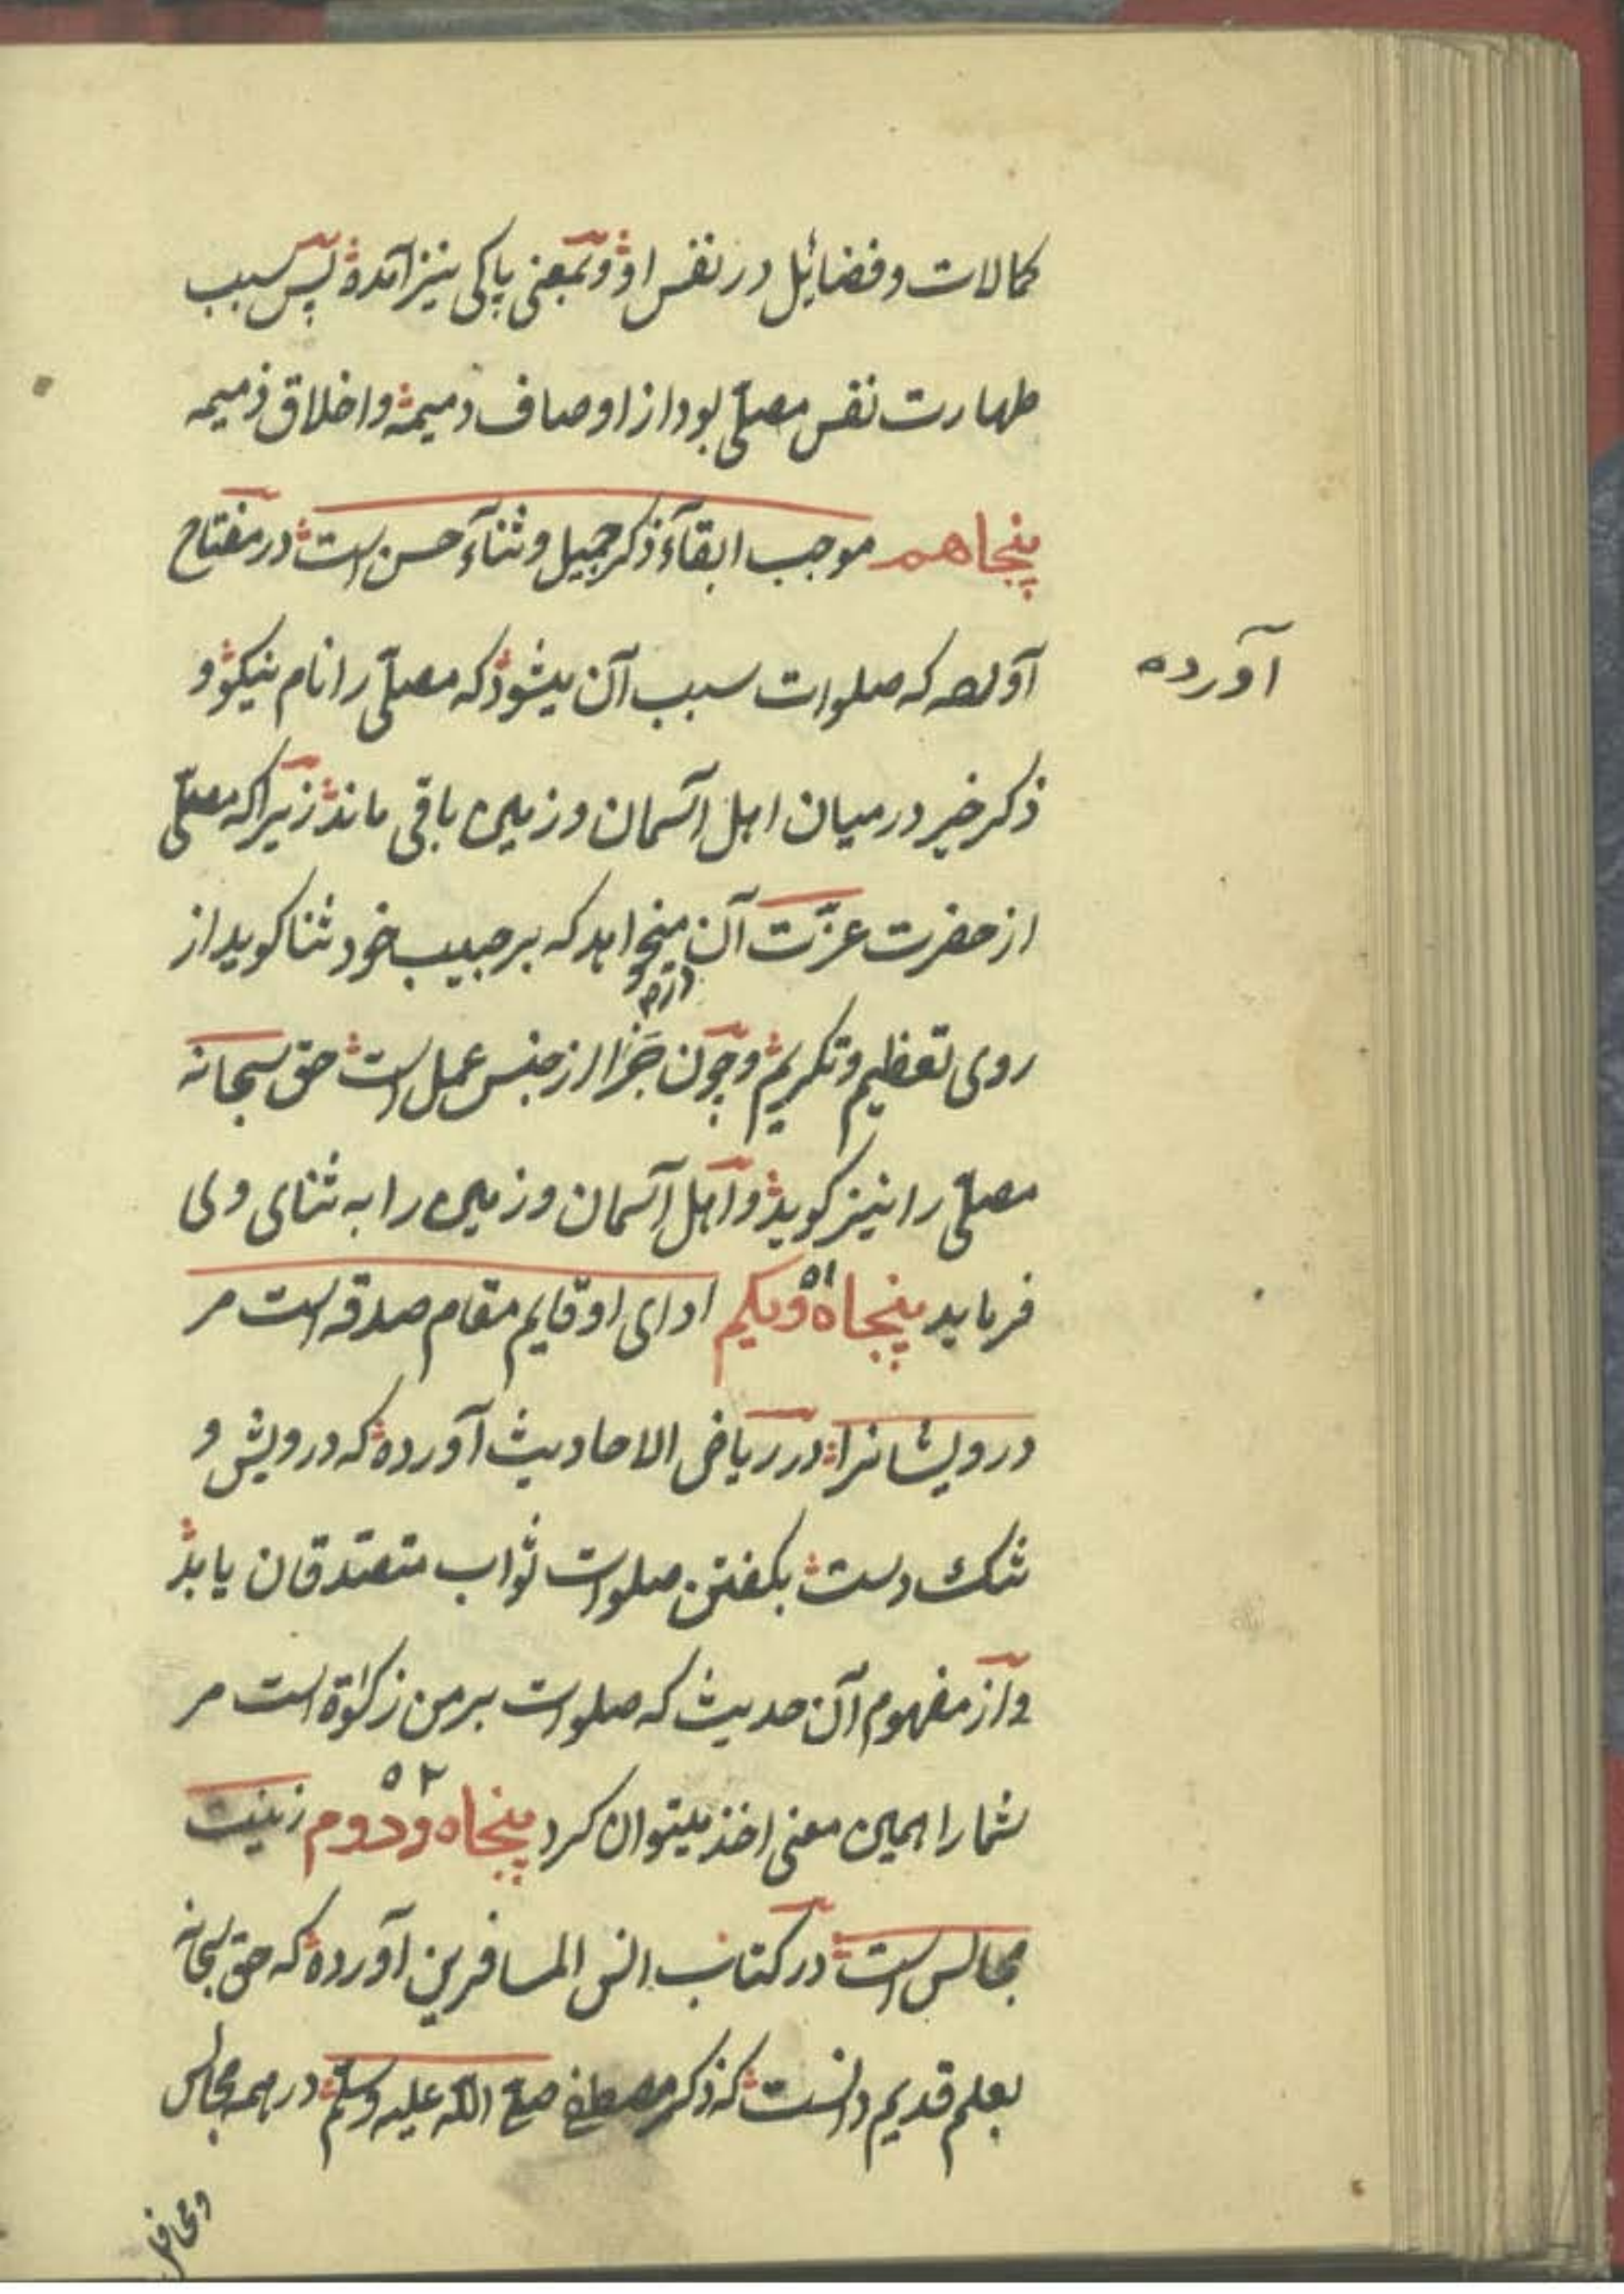 کمالات و فضایل در نفس او و بمعنی پاکی نیز آمده پس سبب
طهارت نفس مصلّی بود از اوصاف دمیمه و اخلاق ذمیمه
پنجاهم موجب ابقآء ذکر جمیل و ثنآء حسن است در مفتاح
آورده که صلوات سبب آن میشود که مصلّی را نام نیکو و
آورده
ذکر خیر در میان اهل آسمان و زمین باقی ماند زیرا که مصلّی
از حضرت عزّت آن میخواهد که بر حبیب خود ثنا کوید از
روی تعظیم و تکریم و چون جزا از جنس عمل است حق سبحانه
مصلّی را نیز کوید و اهل آسمان و زمین را به ثنای وی
فرماید پنجاه و یکم ۵۱ ادای او قایم مقام صدقه است مر
درویشانرا در ریاض الاحادیث آورده که درویش و
تنک دست بکفتن صلوات ثواب متصدّقان یابد
و از مفهوم آن حدیث که صلوات بر من زکوٰة است مر
شما را همین معنی اخذ میتوان کرد پنجاه و دوم ۵۲ زینت
مجالس است در کتاب انس المسافرین آورده که حق سبحانه
بعلم قدیم دانست که ذکر مصطفی صلی الله علیه وسلّم در همه مجالس
و محافل